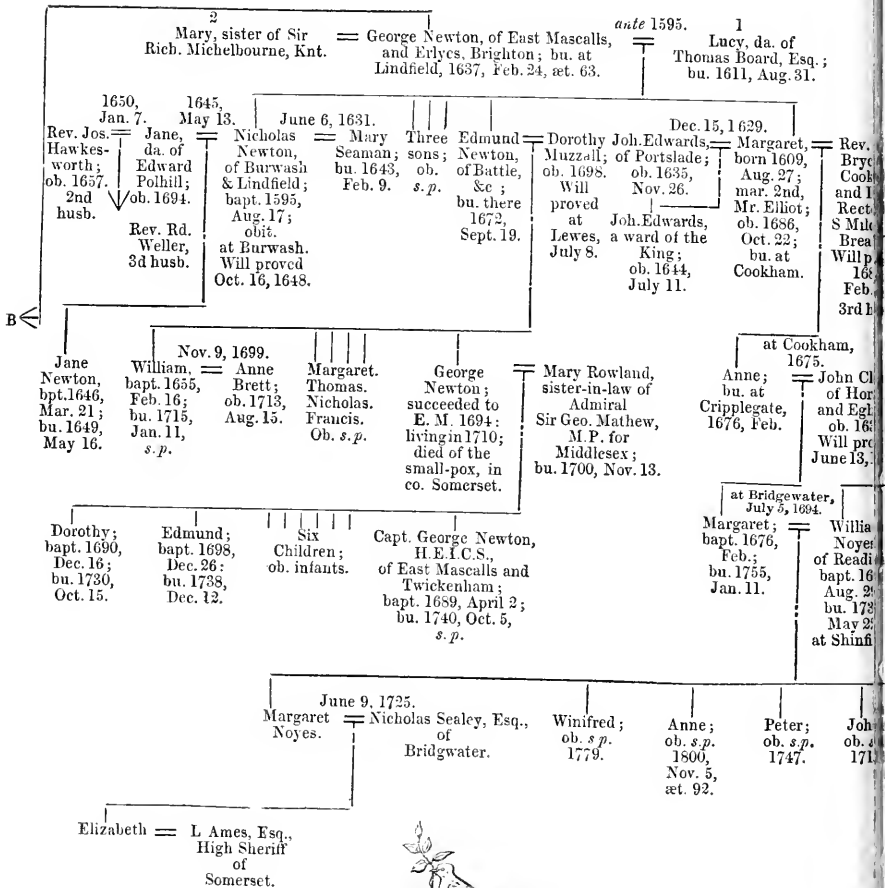 2
Mary, sister of Sir
Rich. Michelbourne, Knt.
=
George Newton, of East Mascalls,
and Erlycs, Brighton; bu. at
Lindfield, 1637, Feb. 24, æt. 63.
ante 1595.
=
1
Lucy, da. of
Thomas Board, Esq.;
bu. 1611, Aug. 31.
Rev. Jos.
Hawkes-
worth;
ob. 1657.
2nd
husb.
1650,
Jan. 7.
=
Jane,
da. of
Edward
Polhill;
ob. 1694.
Rev. Rd.
Weller,
3d husb.
1645,
May 13.
=
Nicholas
Newton,
of Burwash
& Lindfield;
bapt. 1595,
Aug. 17;
obit.
at Burwash.
Will proved
Oct. 16, 1648.
June 6, 1631.
=
Mary
Seaman;
bu. 1643,
Feb. 9.
Three
sons;
ob.
s.p.
Edmund
Newton,
of Battle,
&c;
bu. there
1672,
Sept. 19.
=
Dorothy
Muzzall;
ob. 1698.
Will
proved
at
Lewes,
July 8.
Joh. Edwards,
of Portslade;
ob. 1635,
Nov. 26.
Joh. Edwards,
a ward of the
King;
ob. 1644,
July 11.
Dec. 15, 1629.
=
Margaret,
born 1609,
Aug. 27;
mar. 2nd,
Mr. Elliot;
ob. 1686,
Oct. 22;
bu. at
Cookham.
=
Rev.
Feb.
B
Jane
Newton,
bpt. 1646,
Mar. 21;
bu. 1649,
May 16.
William,
bapt. 1655,
Feb. 16;
bu. 1715,
Jan. 11,
s.p.
Nov. 9, 1699.
=
Anne
Brett;
ob. 1713,
Aug. 15.
Margaret.
Thomas.
Nicholas.
Francis.
Ob. s.p.
George
Newton;
succeeded to
E. M. 1694:
living in 1710;
died of the
small-pox, in
co. Somerset.
=
Mary Rowland,
sister-in-law of
Admiral
Sir Geo. Mathew,
M.P. for
Middlesex;
bu. 1700, Nov. 13.
Anne;
bu. at
Cripplegate,
1676, Feb.
at Cookham,
1675.
=
John
of
and
ob.
Will
June 13,
Dorothy;
bapt. 1690,
Dec. 16;
bu. 1730,
Oct. 15.
Edmund;
bapt. 1698,
Dec. 26:
bu. 1738,
Dec. 12.
Six
Children;
ob. infants.
Capt. George Newton,
H.E.I.C.S.,
of East Mascalls and
Twickenham;
bapt. 1689, April 2;
bu. 1740, Oct. 5,
s.p.
at Bridgewater,
July 5, 1694.
Margaret;
bapt. 1676,
Feb.;
bu. 1755,
Jan. 11.
=
of
bapt.
Aug.
bu.
May
at
June 9, 1725.
Margaret
Noyes.
=
Nicholas Sealey, Esq.,
of
Bridgwater.
Winifred;
ob. s.p.
1779.
Anne;
ob. s.p.
1800,
Nov. 5,
æt. 92.
Peter;
ob. s.p.
1747.
ob.
Elizabeth = L Ames, Esq.,
High Sheriff
of
Somerset.